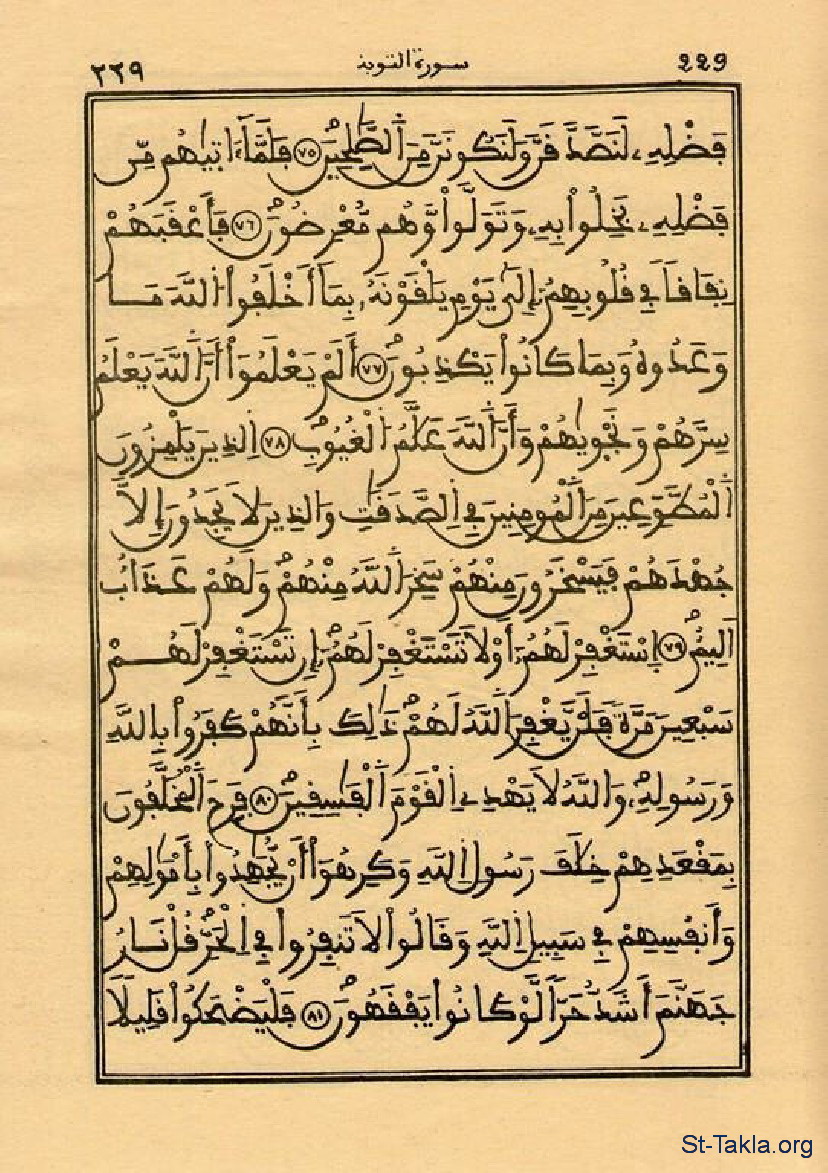 ٢٢٩ سورة التوبة 229
فَضْلِهِۦ لَنَصَّدَّقَنَّ وَلَنَكُونَنَّ مِنَ ٱلصَّٰلِحِينَ ٧٥ فَلَمَّآ ءَاتَيٰهُم مِّن
فَضْلِهِۦ بَخِلُوا۟ بِهِۦ وَتَوَلَّوا۟ وَّهُم مُّعْرِضُونَ ٧٦ فَأَعْقَبَهُمْ
نِفَاقًا فِي قُلُوبِهِمُۥٓ إِلَىٰ يَوْمِ يَلْقَوْنَهُۥ بِمَآ أَخْلَفُوا۟ ٱللَّهَ مَا
وَعَدُوهُ وَبِمَا كَانُوا۟ يَكْذِبُونَ ٧٧ أَلَمْ يَعْلَمُوٓا۟ أَنَّ ٱللَّهَ يَعْلَمُ
سِرَّهُمْ وَنَجْوَيٰهُمْ وَأَنَّ ٱللَّهَ عَلَّٰمُ ٱلْغُيُوبِ ٧٨ ٱلذِينَ يَلْمِزُونَ
ٱلْمُطَّوِّعِينَ مِنَ ٱلْمُومِنِينَ فِي ٱلصَّدَقَٰتِ وَالذِينَ لَا يَجِدُونَ إِلَّا
جُهْدَهُمْ فَيَسْخَرُونَ مِنْهُمْ سَخِرَ ٱللَّهُ مِنْهُمْ وَلَهُمْ عَذَابٌ
اَلِيمٌ ٧٩ ٱسْتَغْفِرْ لَهُمُۥٓ أَوْ لَا تَسْتَغْفِرْ لَهُمُۥٓ إِن تَسْتَغْفِرْ لَهُمْ
سَبْعِينَ مَرَّةً فَلَنْ يَّغْفِرَ ٱللَّهُ لَهُمْ ذَٰلِكَ بِأَنَّهُمْ كَفَرُوا۟ بِاللَّهِ
وَرَسُولِهِۦ وَاللَّهُ لَا يَهْدِي ٱلْقَوْمَ ٱلْفَٰسِقِينَ ٨٠ فَرِحَ ٱلْمُخَلَّفُونَ
بِمَقْعَدِهِمْ خِلَٰفَ رَسُولِ ٱللَّهِ وَكَرِهُوٓا۟ أَنْ يُّجَٰهِدُوا۟ بِأَمْوَٰلِهِمْ
وَأَنفُسِهِمْ فِي سَبِيلِ ٱللَّهِ وَقَالُوا۟ لَا تَنفِرُوا۟ فِي ٱلْحَرِّ قُلْ نَارُ
جَهَنَّمَ أَشَدُّ حَرًّا لَّوْ كَانُوا۟ يَفْقَهُونَ ٨١ فَلْيَضْحَكُوا۟ قَلِيلًا
St-Takla.org